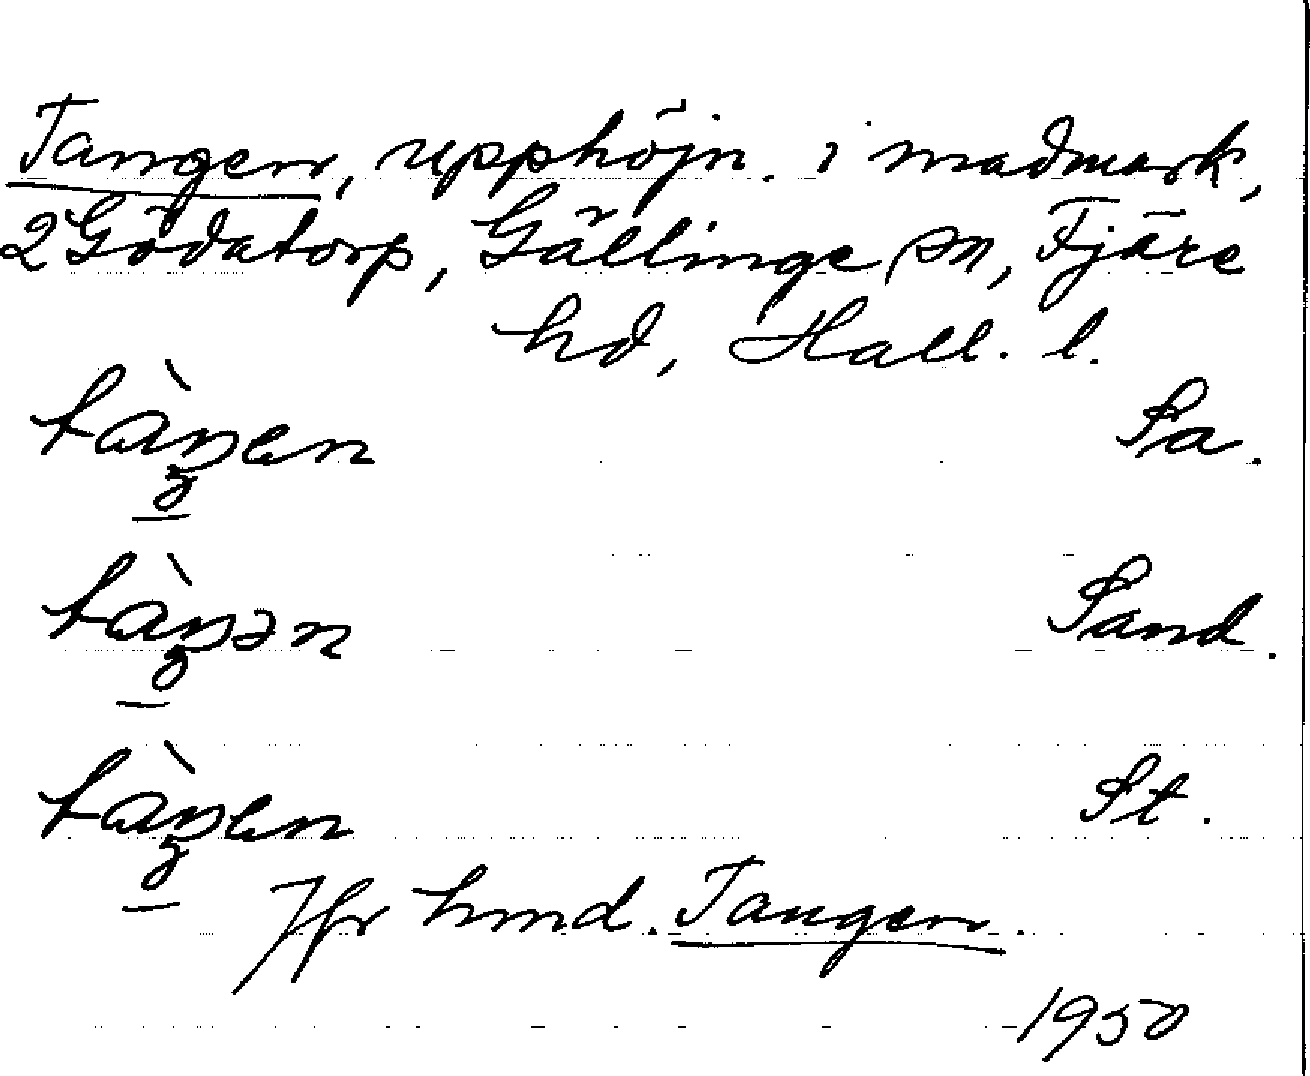 Tangen, upphöjn. i madmark,
2 Gödatorp, Gällinge sn, Fjäre
hd, Hall. l.
tàŋen Sa.
tàŋən Sand.
tàŋen St.
Jfr hmd. Tangen.
1950